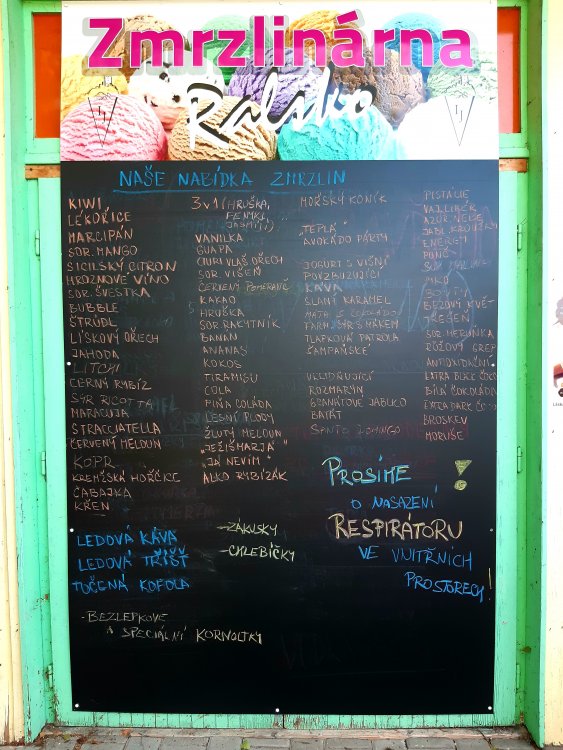 Zmrzlinárna
Ralsko
NAŠE NABÍDKA ZMRZLIN
KIWI,
LÉKOŘICE
MARCIPÁN
SOR. MANGO
SICILSKÝ CITRON
HROZNOVÉ VÍNO
SOR. ŠVESTKA
BUBBLE
ŠTRŮDL
LÍSKOVÝ OŘECH
JAHODA
LITCHI
ČERNÝ RYBÍZ
SÝR RICOTTA
MARACUJA
STRACCIATELLA
ČERVENÝ MELOUN
KOPR
KREMŽSKÁ HOŘČICE
ČABAJKA
KŘEN
3v1 (HRUŠKA,
FENYKL,
JASMÍN)
VANILKA
GUAPA
VLAŠ OŘECH
SOR. VIŠEŇ
ČERVENÝ POMERANČ
KAKAO
HRUŠKA
SOR. RAKYTNÍK
BANÁN
ANANAS
KOKOS
TIRAMISU
COLA
PIŇA COLÁDA
LESNÍ PLODY
ŽLUTÝ MELOUN
„JEŽIŠMARJÁ"
„JÁ NEVÍM"
ALKO RYBÍZÁK
MOŘSKÝ KONÍK
„TEPLÁ"
AVOKÁDO PÁRTY
JOGURT S VIŠNÍ
POVZBUZUJÍCÍ
KÁVA
SLANÝ KARAMEL
MÁTA S ČOKOLÁDOU
FARM. SÝR S MÁKEM
TLAPKOVÁ PATROLA
ŠAMPAŇSKÉ
ROZMARÝN
GRANÁTOVÉ JABLKO
BATÁT
SANTO DOMINGO
PISTÁCIE
VAJ. LIKÉR
AZURO NEBE
ENERGY
PUNČ
SOR. MALINA
BEZOVÝ KVĚT
TŘEŠEŇ
SOR. MERUŇKA
RŮŽOVÝ GREP
ANTIOXIDAČNÍ
EXTRA BLACK ČOKO
BÍLÁ ČOKOLÁDA
EXTRA DARK ČOKO
BROSKEV
MORUŠE
LEDOVÁ KÁVA
LEDOVÁ TŘÍŠŤ
TOČENÁ KOFOLA
- ZÁKUSKY
- CHLEBÍČKY
PROSÍME !
O NASAZENÍ
RESPIRÁTORU
VE VNITŘNÍCH
PROSTORECH!
- BEZLEPKOVÉ
A SPECIÁLNÍ KORNOUTKY